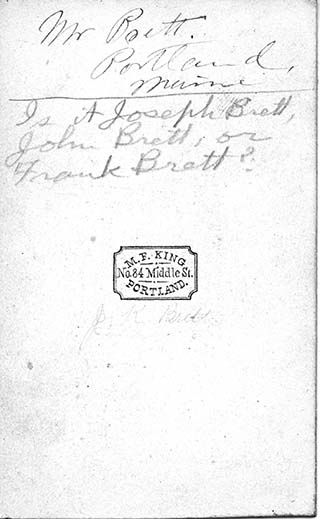 Mr Brett.
Portland,
Maine
Is it Joseph Brett,
John Brett, or
Frank Brett?
M. F. KING.
No. 84 Middle St.
PORTLAND.